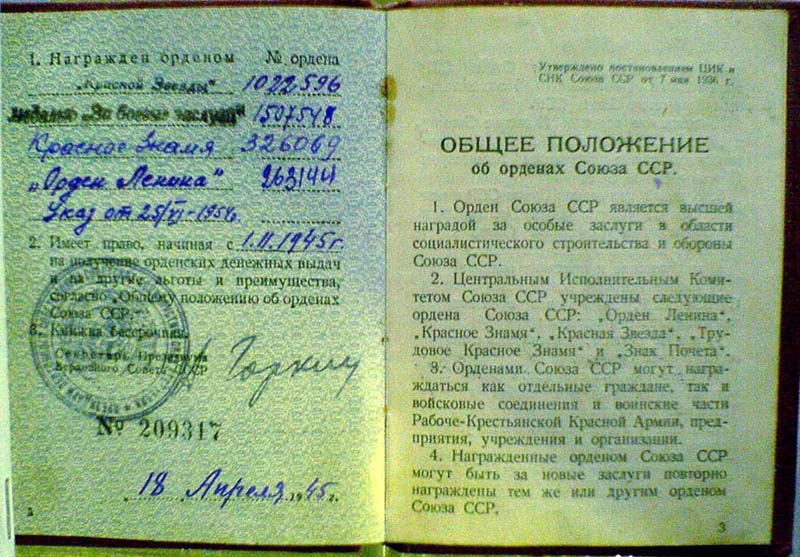 1. Награжден орденом № ордена
„Красной Звезды" 1022596
медалью „За боевые заслуги" 1507548
Красное Знамя 326069
„Орден Ленина" 263144
Указ от 25/VI-1954г.
2. Имеет право, начиная с 1.II.1945г.
на получение орденских денежных выдач
и на другие льготы и преимущества,
согласно „Общему положению об орденах
Союза ССР."
3. Книжка бессрочная.
Секретарь Президиума
Верховного Совета СССР
Горкин
№ 209317
18 Апреля 1945 г.
2
Утверждено постановлением ЦИК и
СНК Союза ССР от 7 мая 1936 г.
ОБЩЕЕ ПОЛОЖЕНИЕ
об орденах Союза ССР.
1. Орден Союза ССР является высшей
наградой за особые заслуги в области
социалистического строительства и обороны
Союза ССР.
2. Центральным Исполнительным Коми-
тетом Союза ССР учреждены следующие
ордена Союза ССР: „Орден Ленина",
„Красное Знамя", „Красная Звезда", „Тру-
довое Красное Знамя" и „Знак Почета".
3. Орденами Союза ССР могут награ-
ждаться как отдельные граждане, так и
войсковые соединения и воинские части
Рабоче-Крестьянской Красной Армии, пред-
приятия, учреждения и организации.
4. Награжденные орденом Союза ССР
могут быть за новые заслуги повторно
награждены тем же или другим орденом
Союза ССР.
3